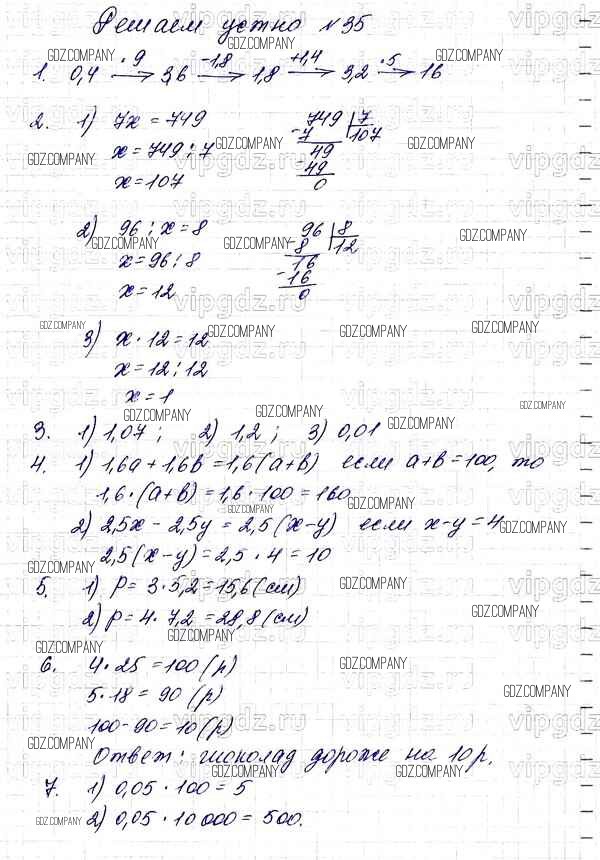 Решаем устно №35
1. 0,4 —·9→ 3,6 —-1,8→ 1,8 —+1,4→ 3,2 —·5→ 16
2. 1) 7x = 749
x = 749 : 7
x = 107
749 | 7
-7 | 107
49
-49
0
2) 96 : x = 8
x = 96 : 8
x = 12
96 | 8
-8 | 12
16
-16
0
3) x · 12 = 12
x = 12 : 12
x = 1
3. 1) 1,07 ; 2) 1,2 ; 3) 0,01
4. 1) 1,6a + 1,6b = 1,6(a+b) если a+b = 100, то
1,6 · (a+b) = 1,6 · 100 = 160
2) 2,5x - 2,5y = 2,5(x-y) если x-y = 4
2,5(x-y) = 2,5 · 4 = 10
5. 1) P = 3 · 5,2 = 15,6 (см)
2) P = 4 · 7,2 = 28,8 (см)
6. 4 · 25 = 100 (р)
5 · 18 = 90 (р)
100 - 90 = 10 (р)
Ответ: шоколад дороже на 10 р.
7. 1) 0,05 · 100 = 5
2) 0,05 · 10 000 = 500.